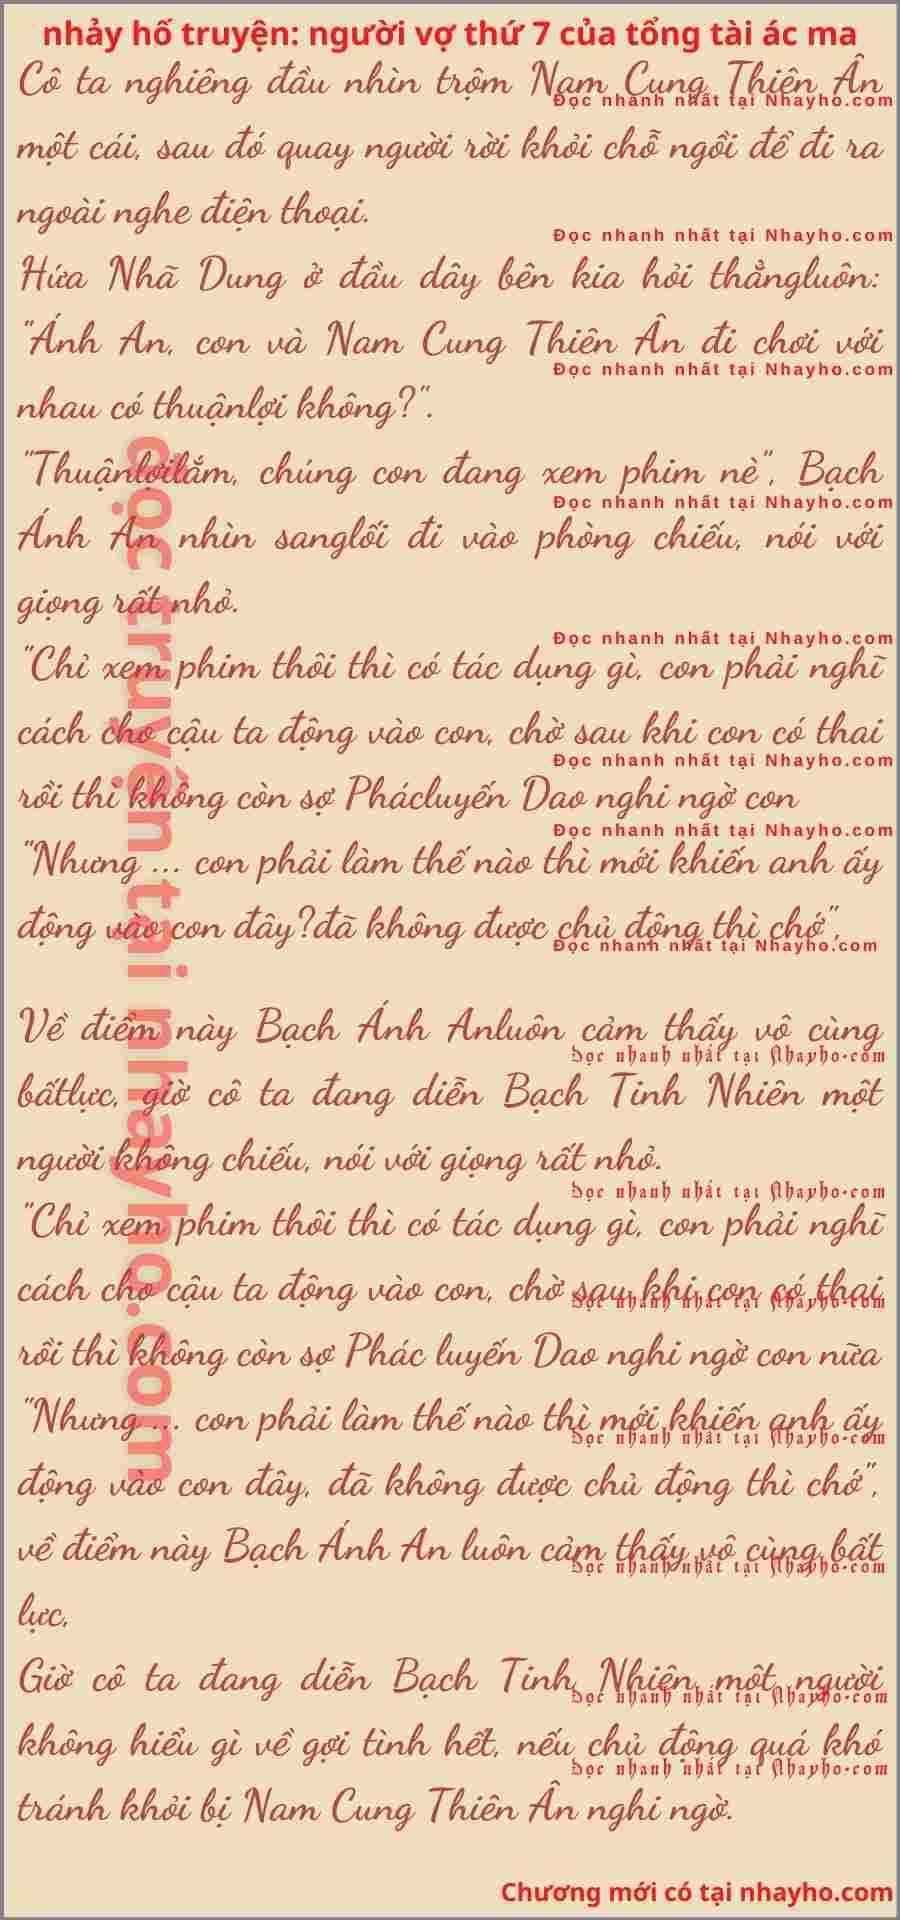 nhảy hố truyện: người vợ thứ 7 của tổng tài ác ma
Cô ta nghiêng đầu nhìn trộm Nam Cung Thiên Ân
Đọc nhanh nhất tại Nhayho.com
một cái, sau đó quay người rời khỏi chỗ ngồi để đi ra
ngoài nghe điện thoại.
Đọc nhanh nhất tại Nhayho.com
Hứa Nhã Dung ở đầu dây bên kia hỏi thẳngluôn:
"Ánh An, con và Nam Cung Thiên Ân đi chơi với
Đọc nhanh nhất tại Nhayho.com
nhau có thuậnlợi không?".
"Thuậnlợilắm, chúng con đang xem phim nè", Bạch
Đọc nhanh nhất tại Nhayho.com
Ánh An nhìn sanglối đi vào phòng chiếu, nói với
giọng rất nhỏ.
Đọc nhanh nhất tại Nhayho.com
"Chỉ xem phim thôi thì có tác dụng gì, con phải nghĩ
cách cho cậu ta động vào con, chờ sau khi con có thai
Đọc nhanh nhất tại Nhayho.com
rồi thì không còn sợ Phácluyến Dao nghi ngờ con
Đọc nhanh nhất tại Nhayho.com
"Nhưng ... con phải làm thế nào thì mới khiến anh ấy
động vào con đây?đã không được chủ động thì chớ",
Đọc nhanh nhất tại Nhayho.com
Về điểm này Bạch Ánh Anluôn cảm thấy vô cùng
Đọc nhanh nhất tại Nhayho.com
bấtlực, giờ cô ta đang diễn Bạch Tinh Nhiên một
người không chiếu, nói với giọng rất nhỏ.
Đọc nhanh nhất tại Nhayho.com
"Chỉ xem phim thôi thì có tác dụng gì, con phải nghĩ
cách cho cậu ta động vào con, chờ sau khi con có thai
Đọc nhanh nhất tại Nhayho.com
rồi thì không còn sợ Phác luyến Dao nghi ngờ con nữa
"Nhưng ... con phải làm thế nào thì mới khiến anh ấy
Đọc nhanh nhất tại Nhayho.com
động vào con đây, đã không được chủ động thì chớ",
về điểm này Bạch Ánh An luôn cảm thấy vô cùng bất
Đọc nhanh nhất tại Nhayho.com
lực,
Giờ cô ta đang diễn Bạch Tinh Nhiên một người
Đọc nhanh nhất tại Nhayho.com
không hiểu gì về gợi tình hết, nếu chủ động quá khó
Đọc nhanh nhất tại Nhayho.com
tránh khỏi bị Nam Cung Thiên Ân nghi ngờ.
Chương mới có tại nhayho.com
đọc truyện tại nhayho.com